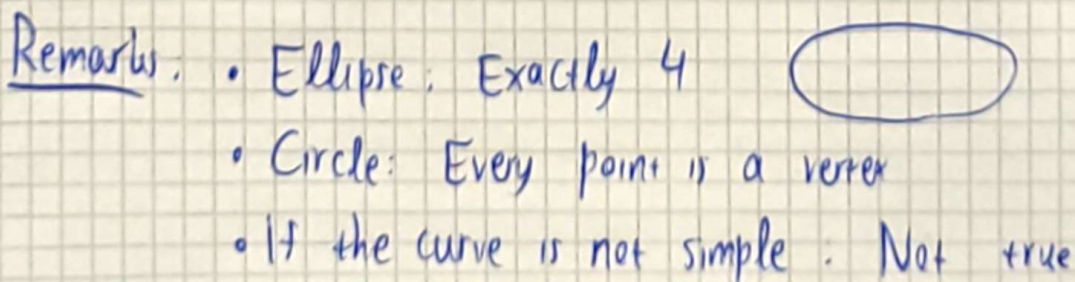 Remarks: • Ellipse: Exactly 4
• Circle: Every point is a vertex
• If the curve is not simple: Not true